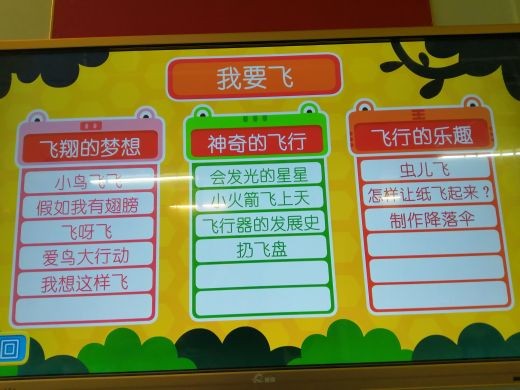 我要飞
飞翔的梦想
小鸟飞飞
假如我有翅膀
飞呀飞
爱鸟大行动
我想这样飞
神奇的飞行
会发光的星星
小火箭飞上天
飞行器的发展史
扔飞盘
飞行的乐趣
虫儿飞
怎样让纸飞起来？
制作降落伞
回